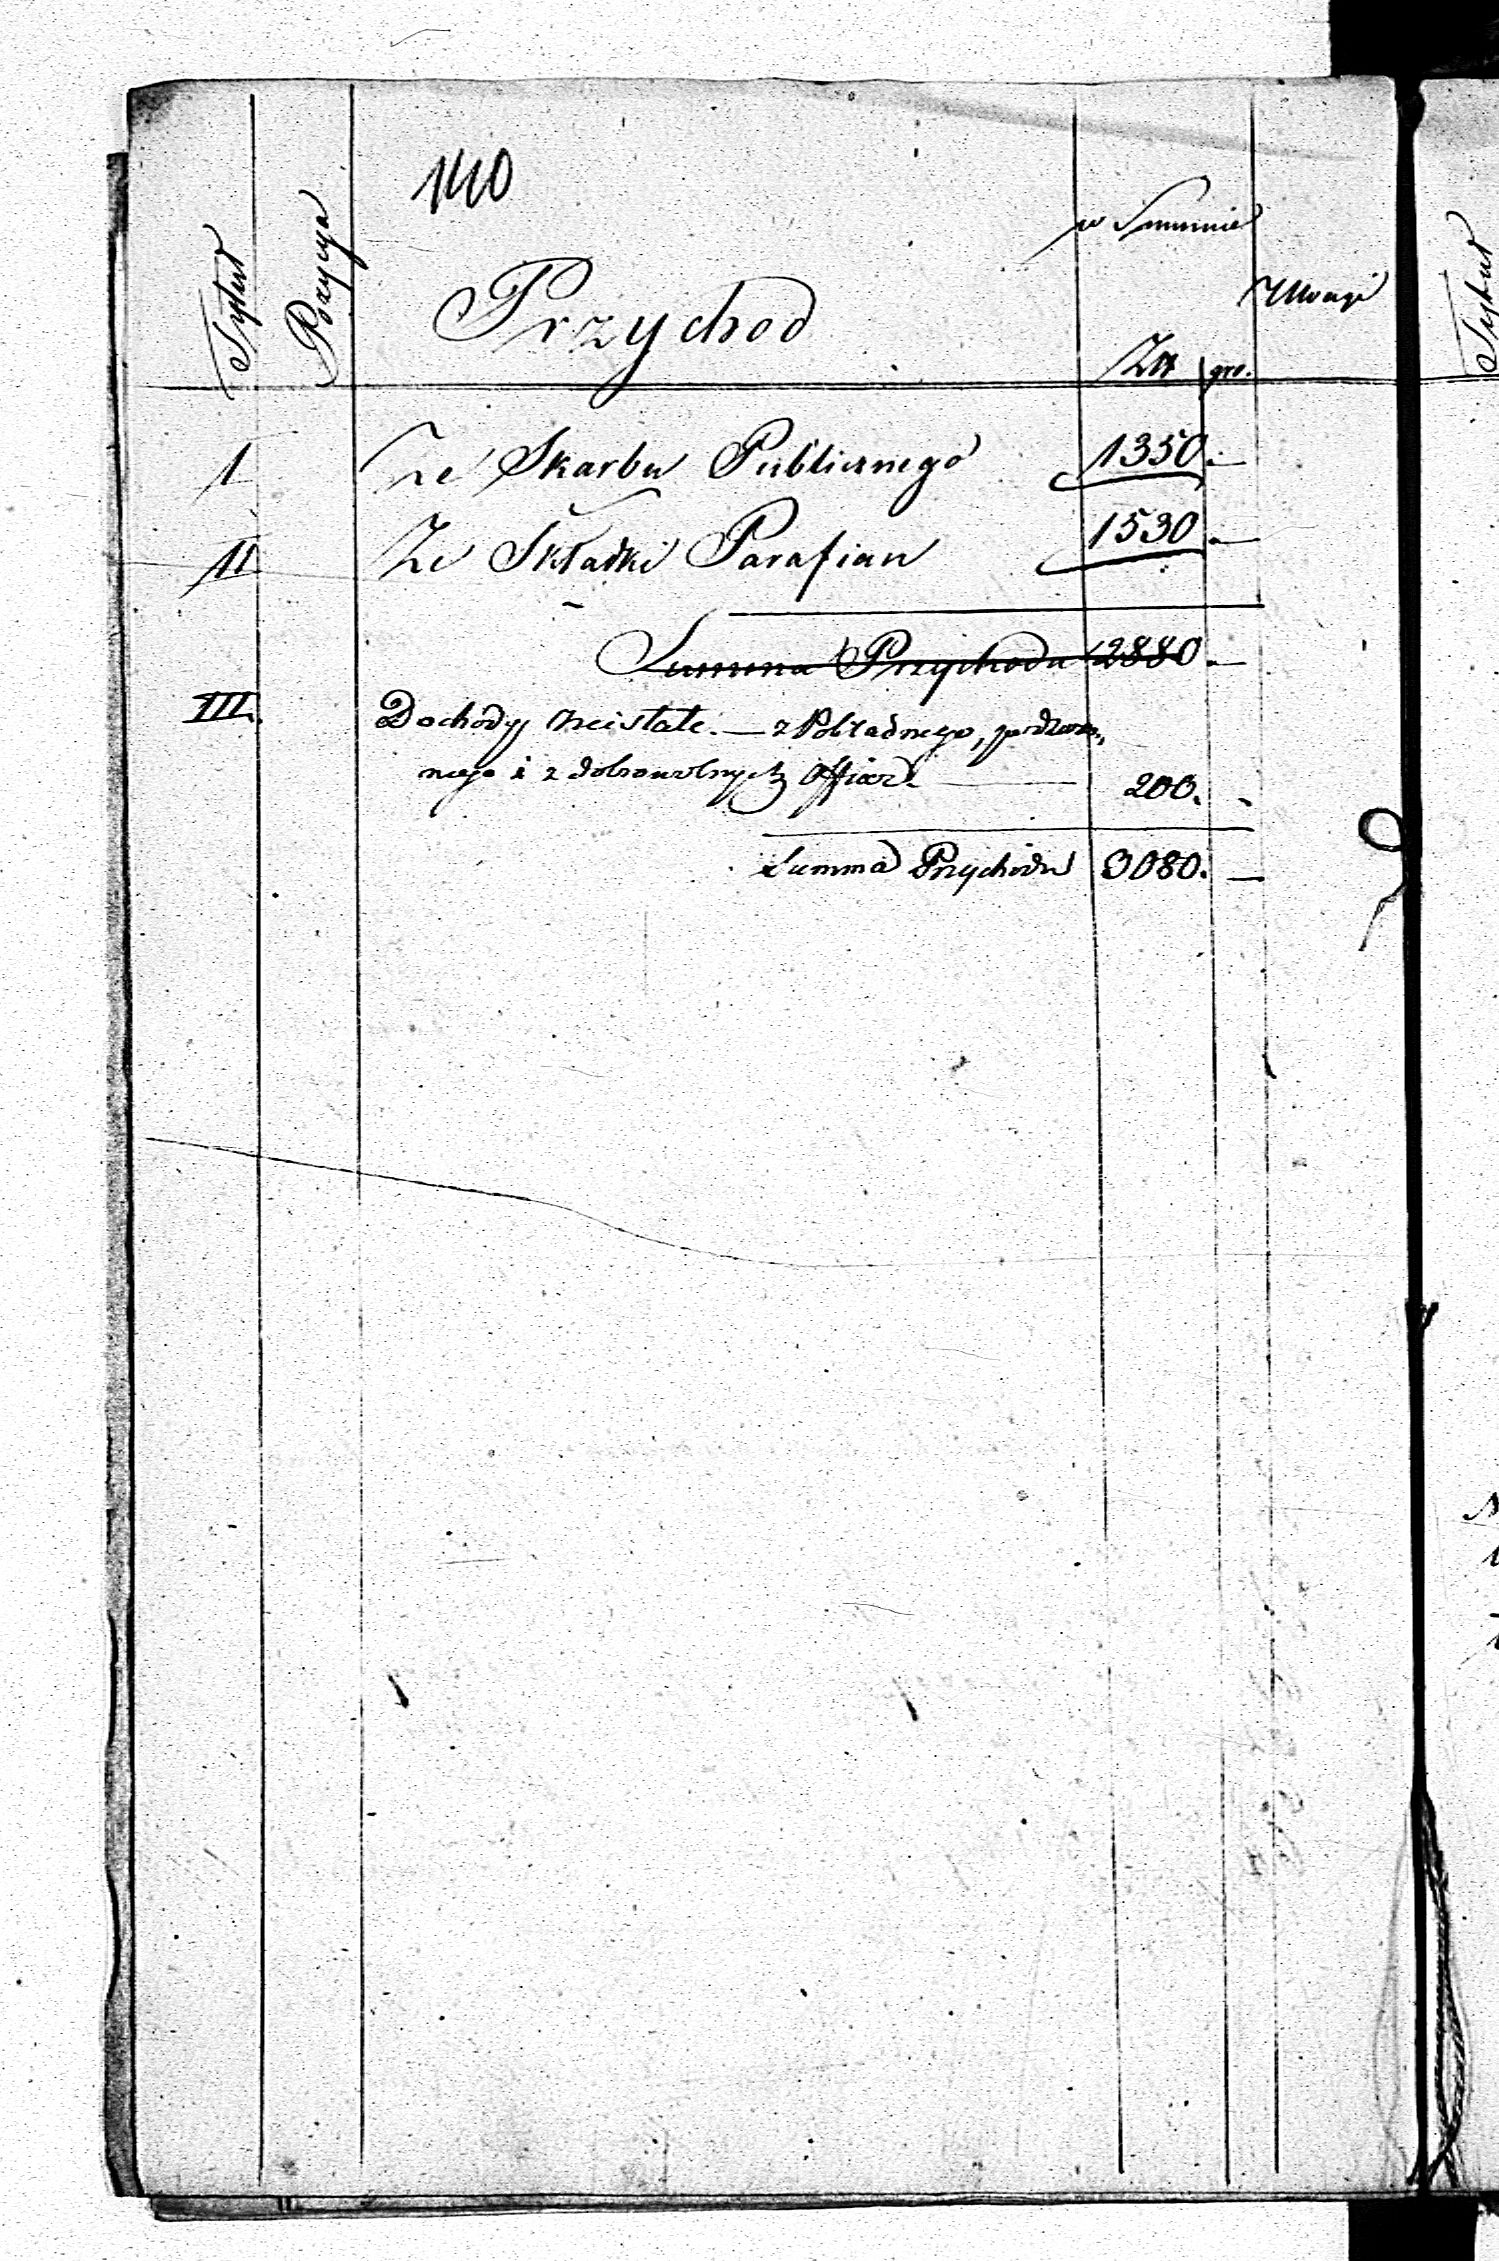 140
w Summie
Uwagi
Tytuł
Pozycya
Przychod
Złł
gro.
I Ze Skarbu Publicznego 1350. —
II Ze Składki Parafian 1530. —
Summa Przychodu 2880. —
III. Dochody Nie stałe. — z Pokładnego,
nego i z dobrowolnych Offiar. 200. -
Summa Przychodu 3080. —
Tytuł